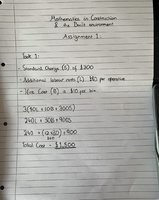 Mathematics in Construction
& the Built environment
Assignment 1.
Task 1:
- Standard Charge (S) of $300
- Additional labour costs (L) $80 per operative
- Hire Cost (B) is $10 per bin
240L + 30B + 900S
Total Cost = $1,500